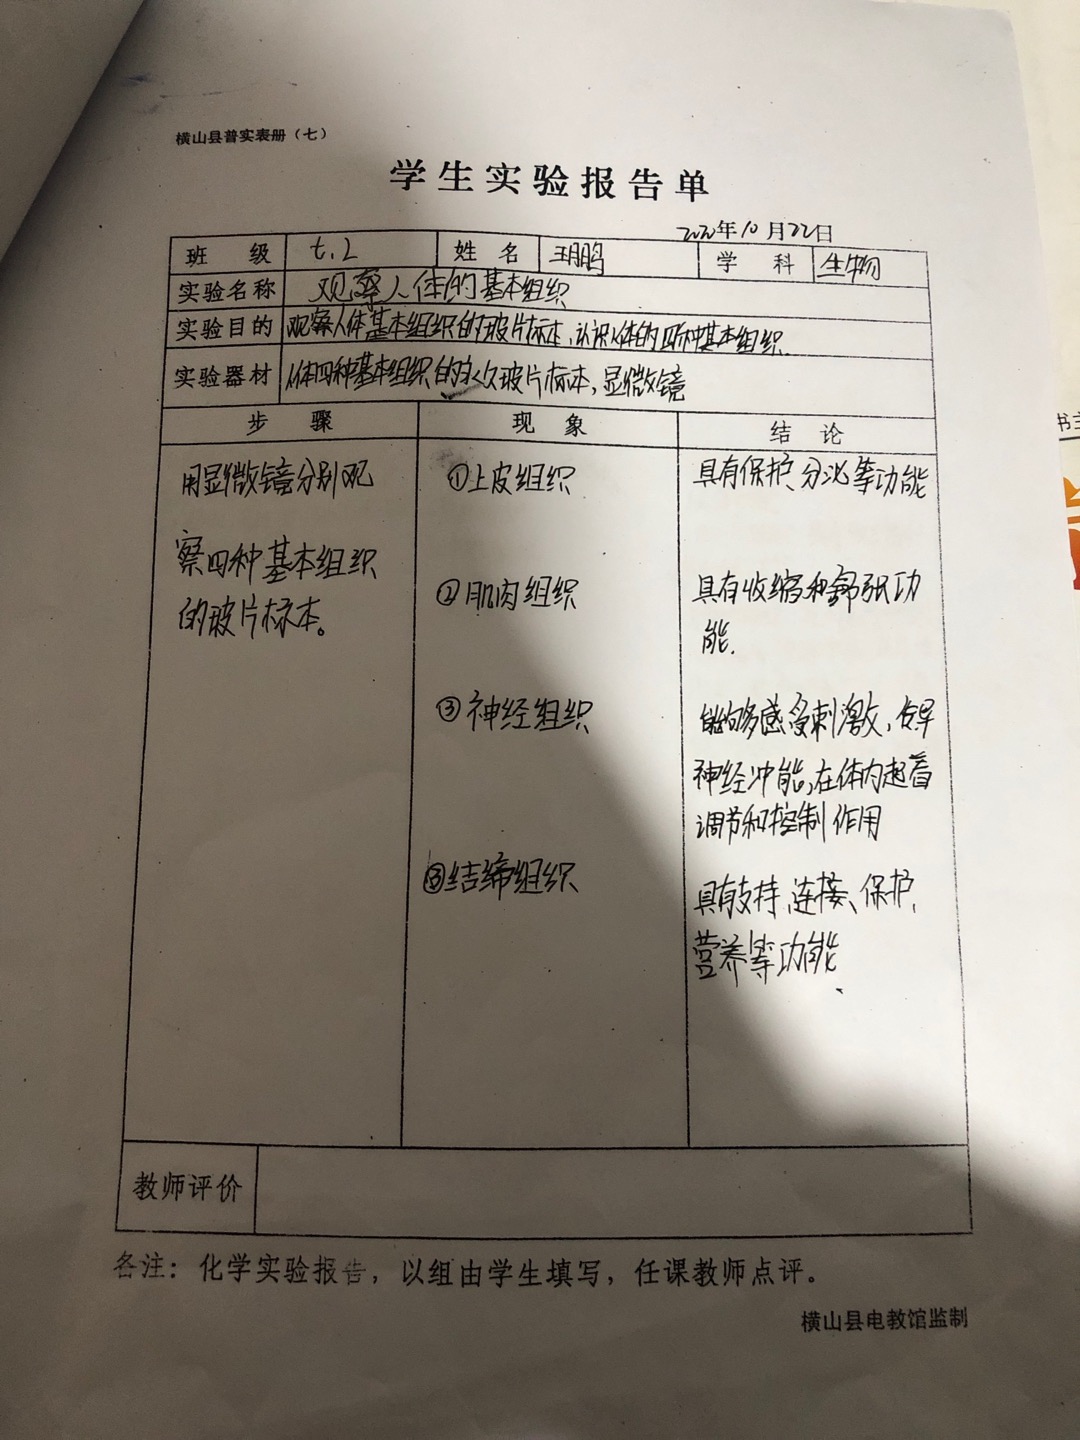 横山县普实表册（七）
学生实验报告单
2020年10月22日
班 级 七.2 姓 名 学 科 生物
实验名称 观察人体的基本组织
实验目的 观察人体基本组织的玻片标本,认识人体的四种基本组织.
实验器材 人体四种基本组织的永久玻片标本,显微镜
步 骤 现 象 结 论
用显微镜分别观
察四种基本组织
的玻片标本。
①上皮组织
②肌肉组织
③神经组织
④结缔组织
具有保护、分泌等功能
具有收缩和舒张功
能.
能够感受刺激,传导
神经冲能,在体内起着
调节和控制作用
具有支持、连接、保护、
营养等功能
教师评价
各注：化学实验报告，以组由学生填写，任课教师点评。
横山县电教馆监制
书主